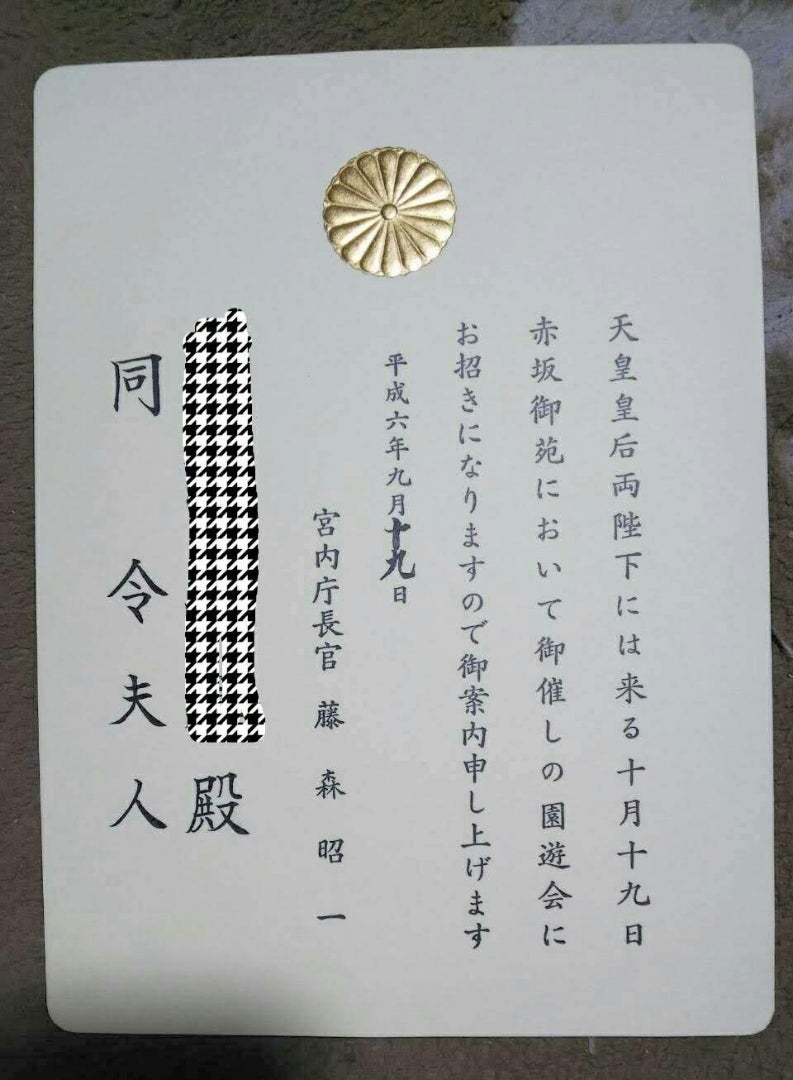 天皇皇后両陛下には来る十月十九日
赤坂御苑において御催しの園遊会に
お招きになりますので御案内申し上げます
平成六年九月十九日
宮内庁長官 藤森昭一
殿
同令夫人